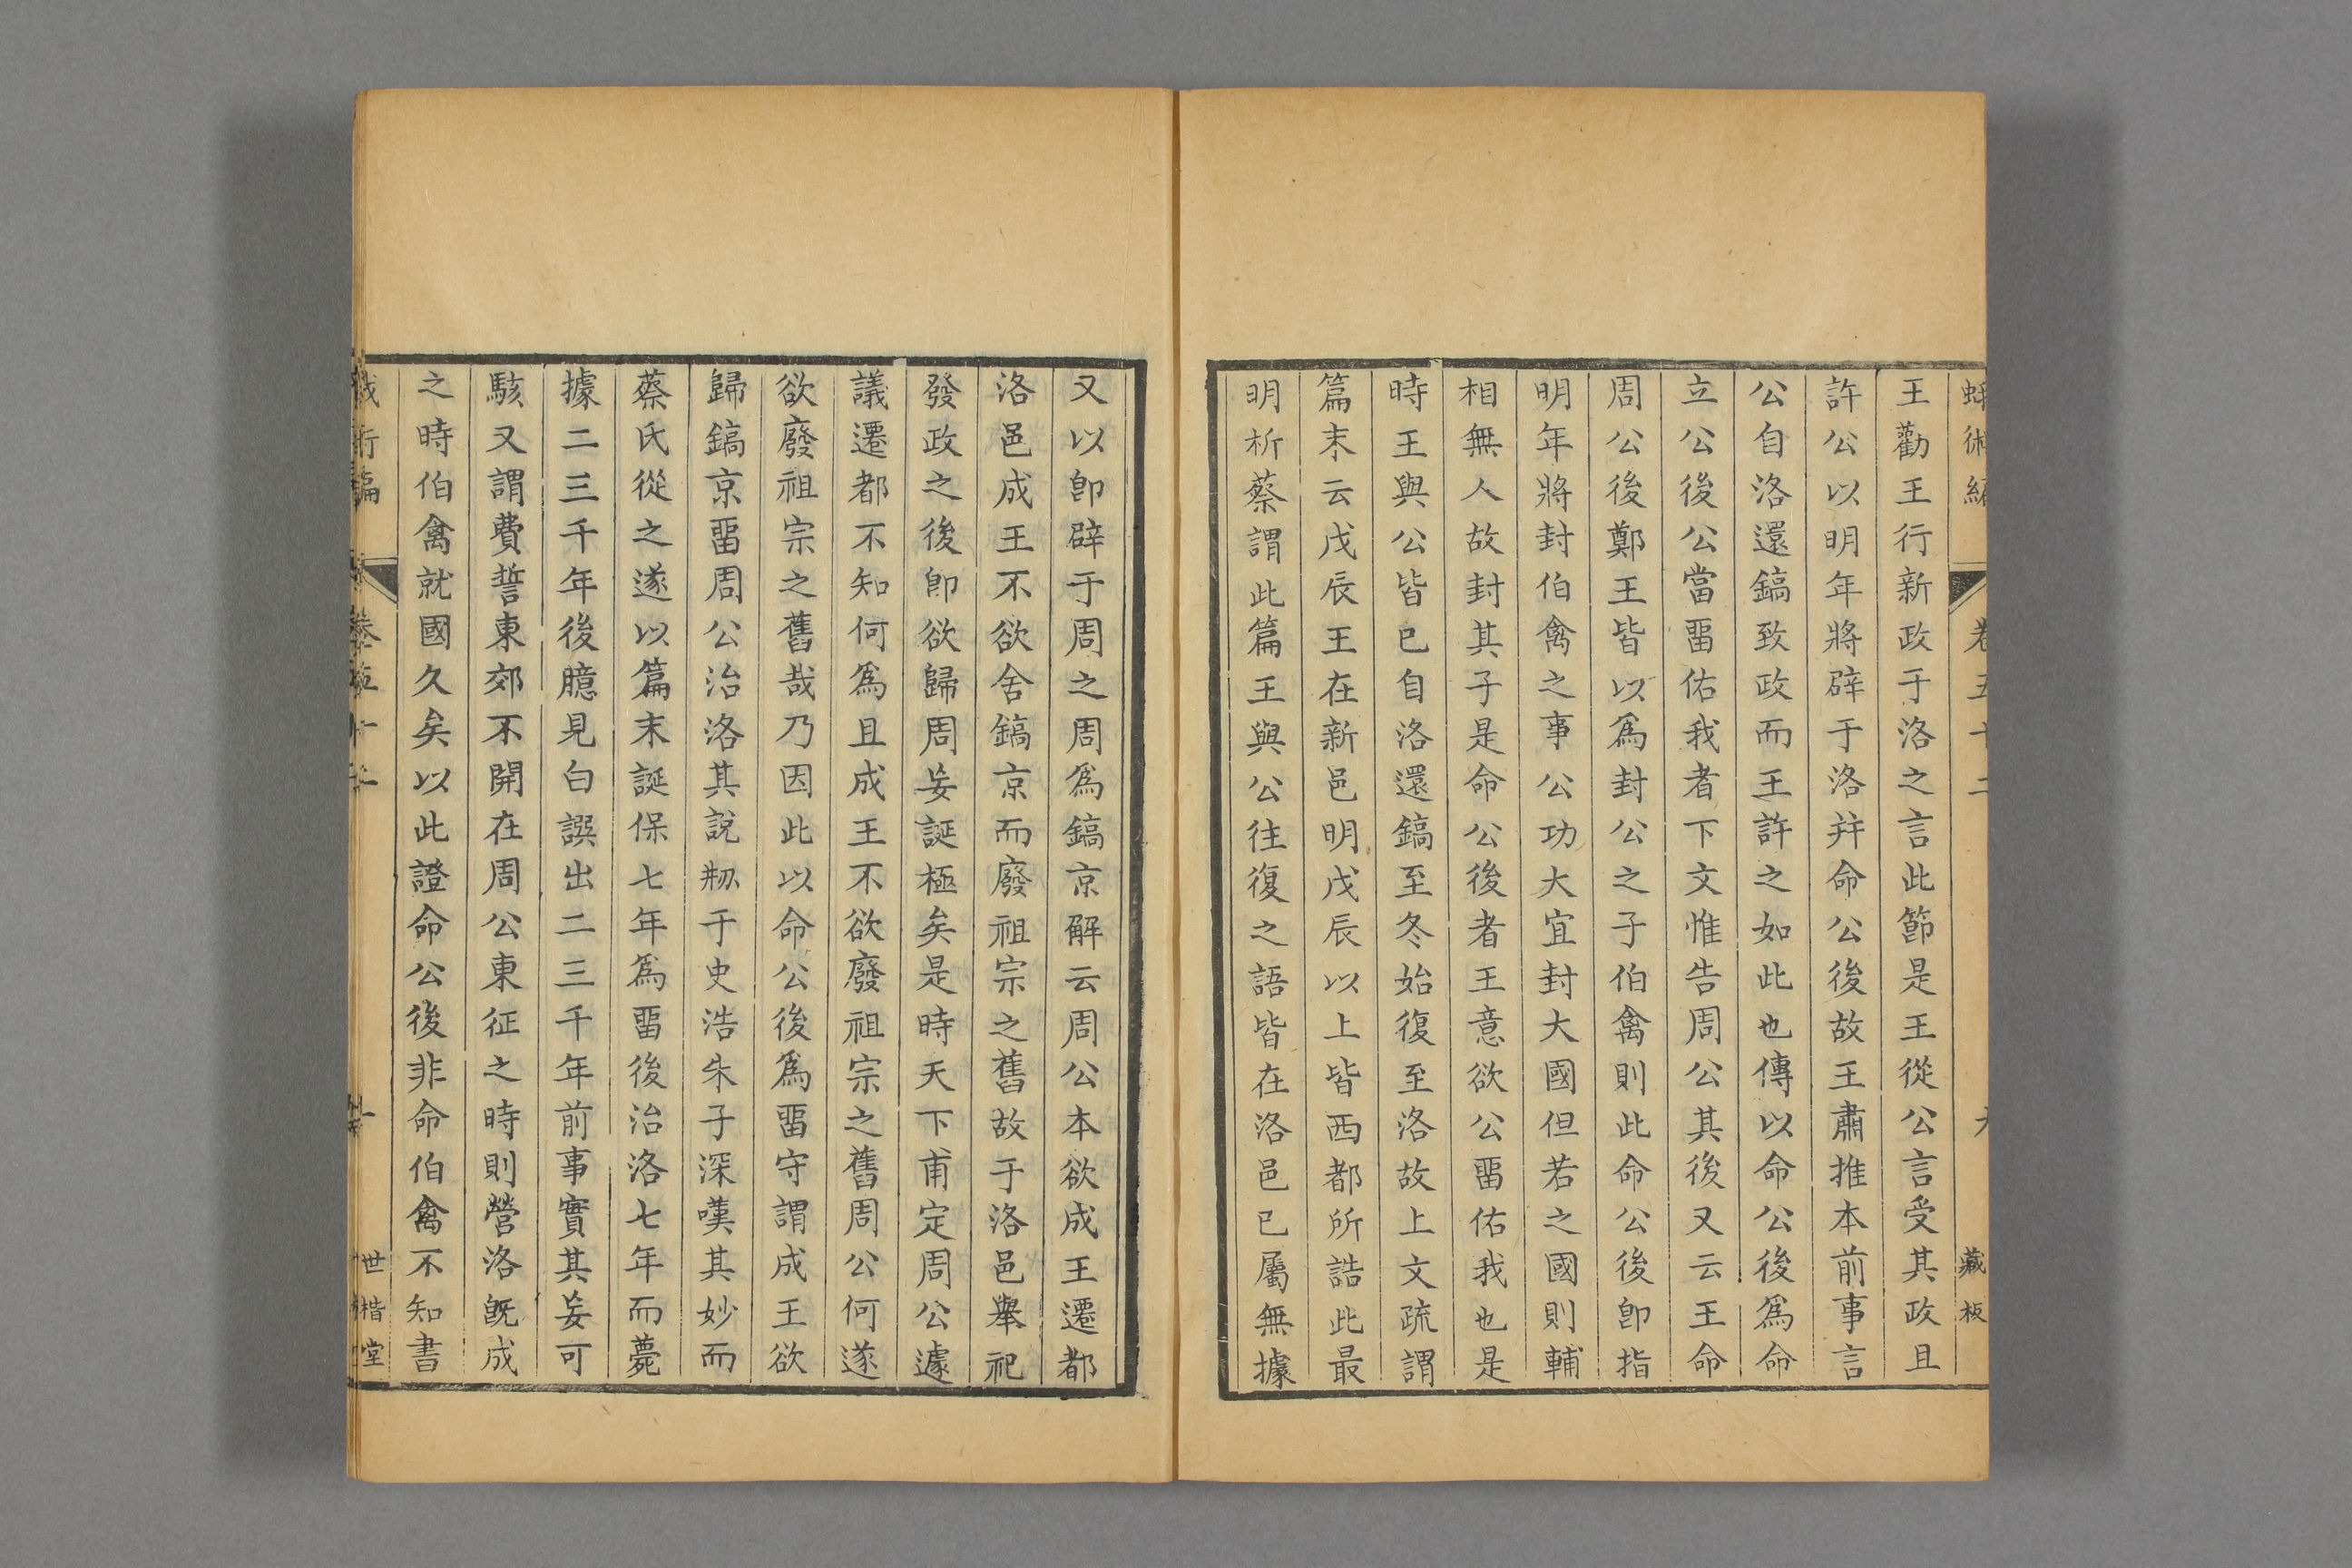 術
卷五十二
藏板
王勸王行新政于洛之言此節是王從公言受其政且
許公以明年將辟于洛并命公後故王肅推本前事言
公自洛還鎬致政而王許之如此也傳以命公後爲命
立公後公當畱佑我者下文惟告周公其後又云王命
周公後鄭王皆以爲封公之子伯禽則此命公後卽指
明年將封伯禽之事公功大宜封大國但若之國則輔
相無人故封其子是命公後者王意欲公畱佑我也是
時王與公皆已自洛還鎬至冬始復至洛故上文疏謂
篇末云戊辰王在新邑明戊辰以上皆西都所誥此最
明析蔡謂此篇王與公往復之語皆在洛邑已屬無據
又以卽辟于周之周爲鎬京解云周公本欲成王遷都
洛邑成王不欲舍鎬京而廢祖宗之舊故于洛邑舉祀
發政之後卽欲歸周妄誕極矣是時天下甫定周公遽
議遷都不知何爲且成王不欲廢祖宗之舊周公何遂
欲廢祖宗之舊哉乃因此以命公後爲畱守謂成王欲
歸鎬京畱周公治洛其說刱于史浩朱子深嘆其妙而
蔡氏從之遂以篇末誕保七年爲畱後治洛七年而薨
據二三千年後臆見白譔出二三千年前事實其妄可
駭又謂費誓東郊不開在周公東征之時則營洛旣成
之時伯禽就國久矣以此證命公後非命伯禽不知書
術編
世楷堂